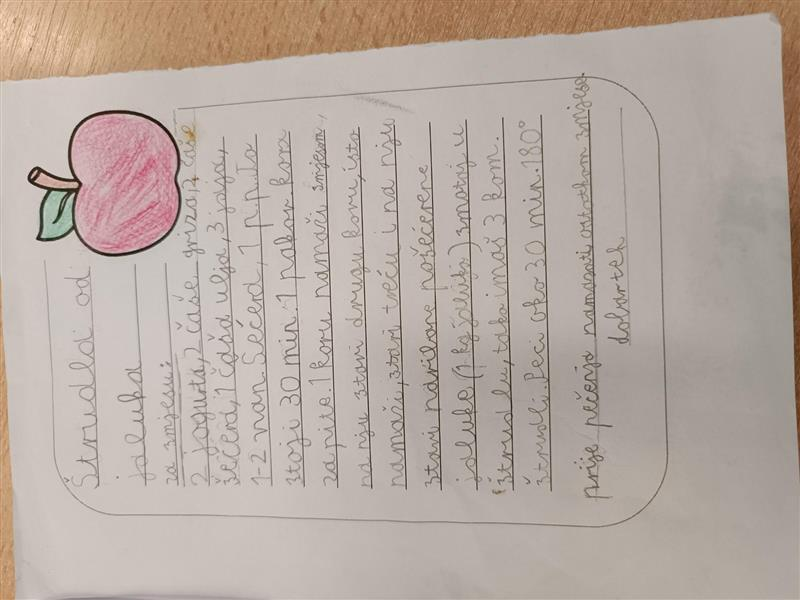 Štrudla od
jabuka
za smjesu:
2 jogurta, 2 čaše griza, 2 čaše
šećera, 1 čaša ulja, 3 jaja,
1-2 van Šećera, 1 p.p. To
stoji 30 min. 1 pakov kora
za pite. 1 koru namaži smjesom,
na nju stavi drugu koru, isto
namaži, stavi treću i na nju
stavi naribane pošećerene
jabuke (1 kg jabuka) zmotaj u
štrudlu, tako imaš 3 kom.
štrudli. Peci oko 30 min. 180°
prije pečenja namazati ostatkom smjese.
dobartek